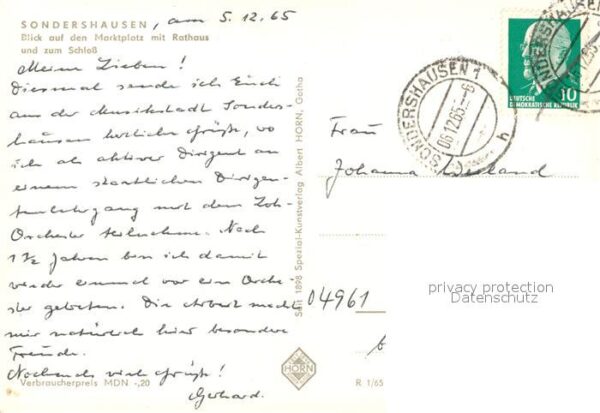 SONDERSHAUSEN, am 5.12.65
Blick auf den Marktplatz mit Rathaus
und zum Schloß
Meine Lieben!
Diesmal sende ich Euch
aus der Musikstadt Sonders-
hausen herzliche Grüße, wo
ich als aktiver Dirigent an
einem staatlichen Dirigen-
tenlehrgang mit dem Loh-
Orchester teilnehme. Nach
1½ Jahren bin ich damit
wieder einmal vor ein Orche-
ster getreten. Die Arbeit macht
mir natürlich hier besondere
Freude.
Nochmals viele Grüße!
Gerhard.
Verbraucherpreis MDN -,20
Seit 1898 Spezial-Kunstverlag Albert HORN, Gotha
HORN
R 1/65
SONDERSHAUSEN 1
06.12.65.-6
h
DEUTSCHE
DEMOKRATISCHE REPUBLIK
10
Frau
Johanna
04961
privacy protection
Datenschutz